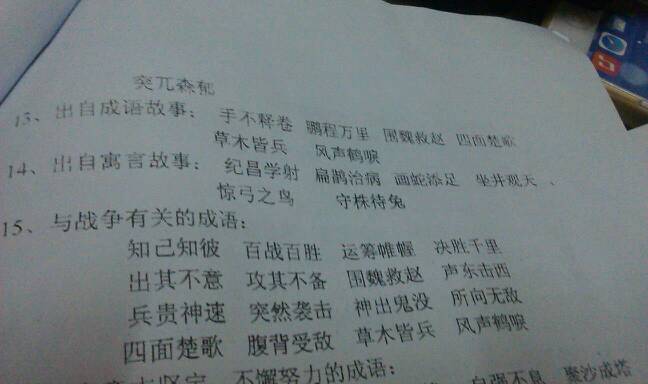 突兀森郁
13、出自成语故事： 手不释卷 鹏程万里 围魏救赵 四面楚歌
草木皆兵 风声鹤唳
14、出自寓言故事： 纪昌学射 扁鹊治病 画蛇添足 坐井观天、
惊弓之鸟 守株待兔
15、与战争有关的成语：
知己知彼 百战百胜 运筹帷幄 决胜千里
出其不意 攻其不备 围魏救赵 声东击西
兵贵神速 突然袭击 神出鬼没 所向无敌
四面楚歌 腹背受敌 草木皆兵 风声鹤唳
坚定、不懈努力的成语： 自强不息 聚沙成塔